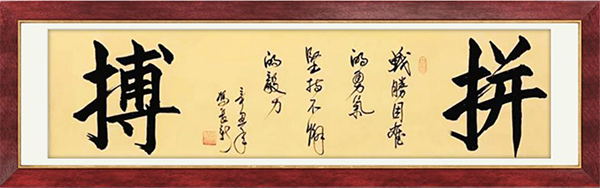 拼
戰勝困難
的勇氣
堅持不懈
的毅力
辛丑年
搏